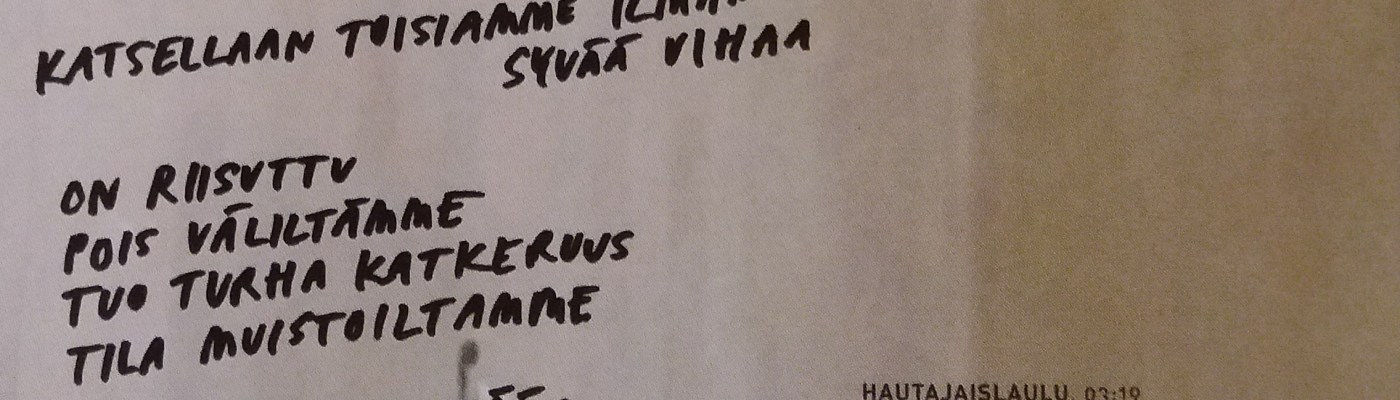 KATSELLAAN TOISIAMME ILMAN
SYVÄÄ VIHAA
ON RIISUTTU
POIS VÄLILTÄMME
TUO TURHA KATKERUUS
TILA MUISTOILTAMME
HAUTAJAISLAULU 03:19